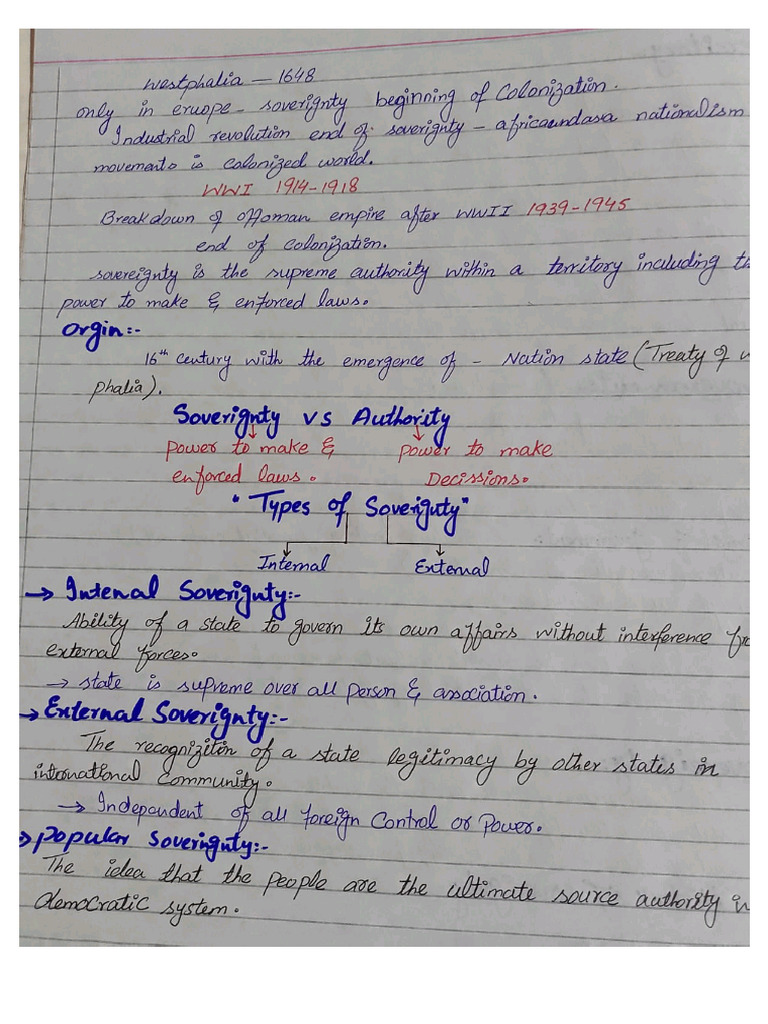 Westphalia — 1648
only in eruope - soverignty beginning of Colonization.
Industrial revolution end of soverignty - africaandasia nationalism
movements is colonized world.
WWI 1914-1918
Breakdown of Ottoman empire after WWII 1939-1945
end of colonization.
sovereignty is the supreme authority within a territory including th
power to make & enforced laws.
Orgin:-
16th century with the emergence of - Nation state (Treaty of w
phalia).
Soverignty vs Authority
power to make & power to make
enforced laws. Decissions.
"Types of Soverignty"
Internal External
→ Intenal Soverignty:-
Ability of a state to govern its own affairs without interference fro
external forces.
→ state is supreme over all person & association.
→ External Soverignty:-
The recogniziton of a state legitimacy by other states in
international Community.
→ Independent of all foreign Control or Power.
→ Popular Soverignty:-
The idea that the people are the ultimate source authority in
democratic system.